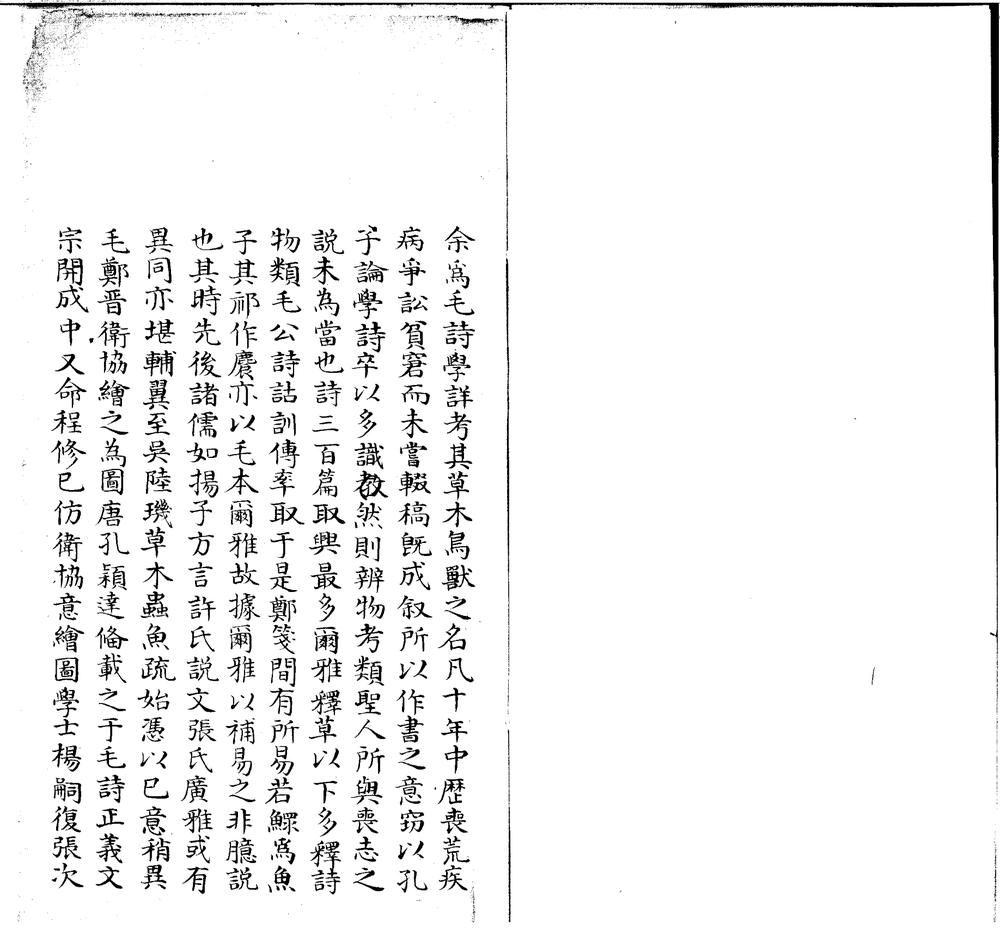 余爲毛詩學詳考其草木鳥獸之名凡十年中歷喪荒疾
病爭訟貧窘而未嘗輟稿旣成叙所以作書之意窃以孔
子論學詩卒以多識教然則辨物考類聖人所與喪志之
説未為當也詩三百篇取興最多爾雅釋草以下多釋詩
物類毛公詩詁訓傳率取于是鄭箋間有所易若鰥爲魚
子其祁作麎亦以毛本爾雅故據爾雅以補易之非臆説
也其時先後諸儒如揚子方言許氏説文張氏廣雅或有
異同亦堪輔翼至吳陸璣草木蟲魚疏始憑以已意稍異
毛鄭晋衛協繪之為圖唐孔穎達偹載之于毛詩正義文
宗開成中又命程修已仿衛協意繪圖學士楊嗣復張次